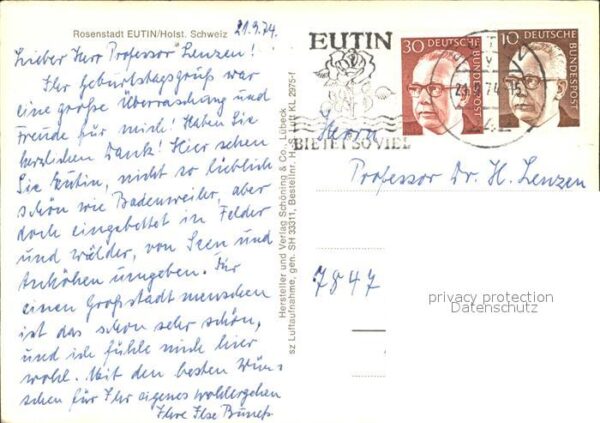 Rosenstadt EUTIN/Holst. Schweiz
21.9.74
Lieber Herr Professor Lenzen!
Ihr Geburtstagsgruß war
eine große Überraschung und
Freude für mich! Haben Sie
herzlichen Dank! Hier sehen
Sie Eutin, nicht so lieblich
schön wie Badenweiler, aber
doch eingebettet in Felder
und Wälder, von Seen und
Anhöhen umgeben. Für
einen Großstadtmenschen
ist das schon sehr schön,
und ich fühle mich hier
wohl. Mit den besten Wün-
schen für Ihr eigenes Wohlergehen
Ihre Ilse
Hersteller und Verlag Schöning & Co., Lübeck
sz Luftaufnahme, gen. SH 33311, Bestellnr. KL 2975-f
EUTIN
BIETET SO VIEL
30 DEUTSCHE BUNDESPOST
10 DEUTSCHE BUNDESPOST
Herrn
Professor Dr. H. Lenzen
7847
privacy protection
Datenschutz